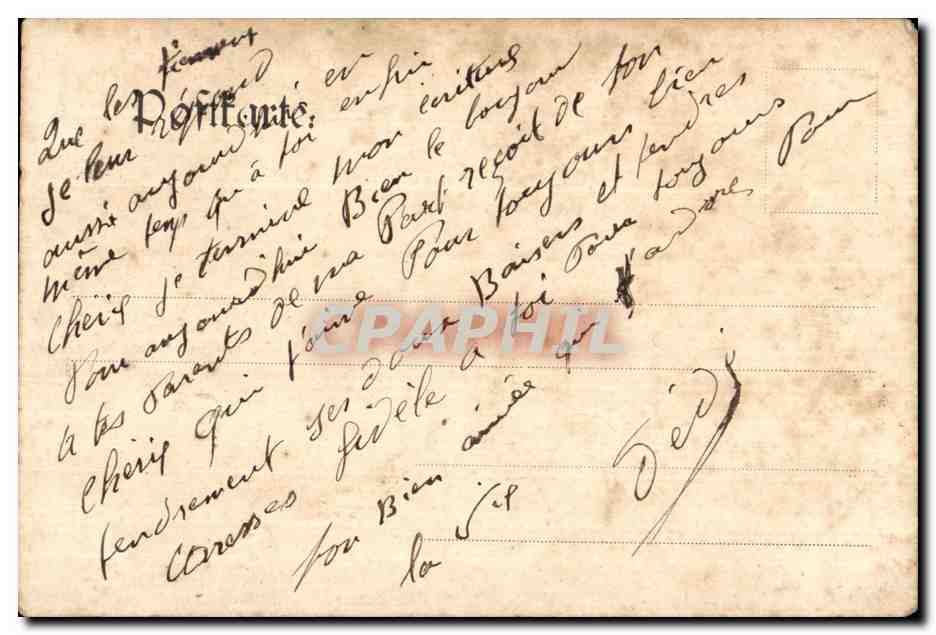 Postkarte.
Que les tiennent
Je leur répond
aussi aujourd'hui en
même temps qu'à toi enfin
Chéris je termine mon écriture
Pour aujourd'hui Bien le bonjour
a tes Parents de ma Part reçoit de ton
Chéris qui t'aime Pour toujours bien
tendrement ses doux Baisers et tendres
Caresses fidèle a toi Pour toujours
ton Bien aimée qui t'adores Pour
la vie
Dédé
CPAPHIL